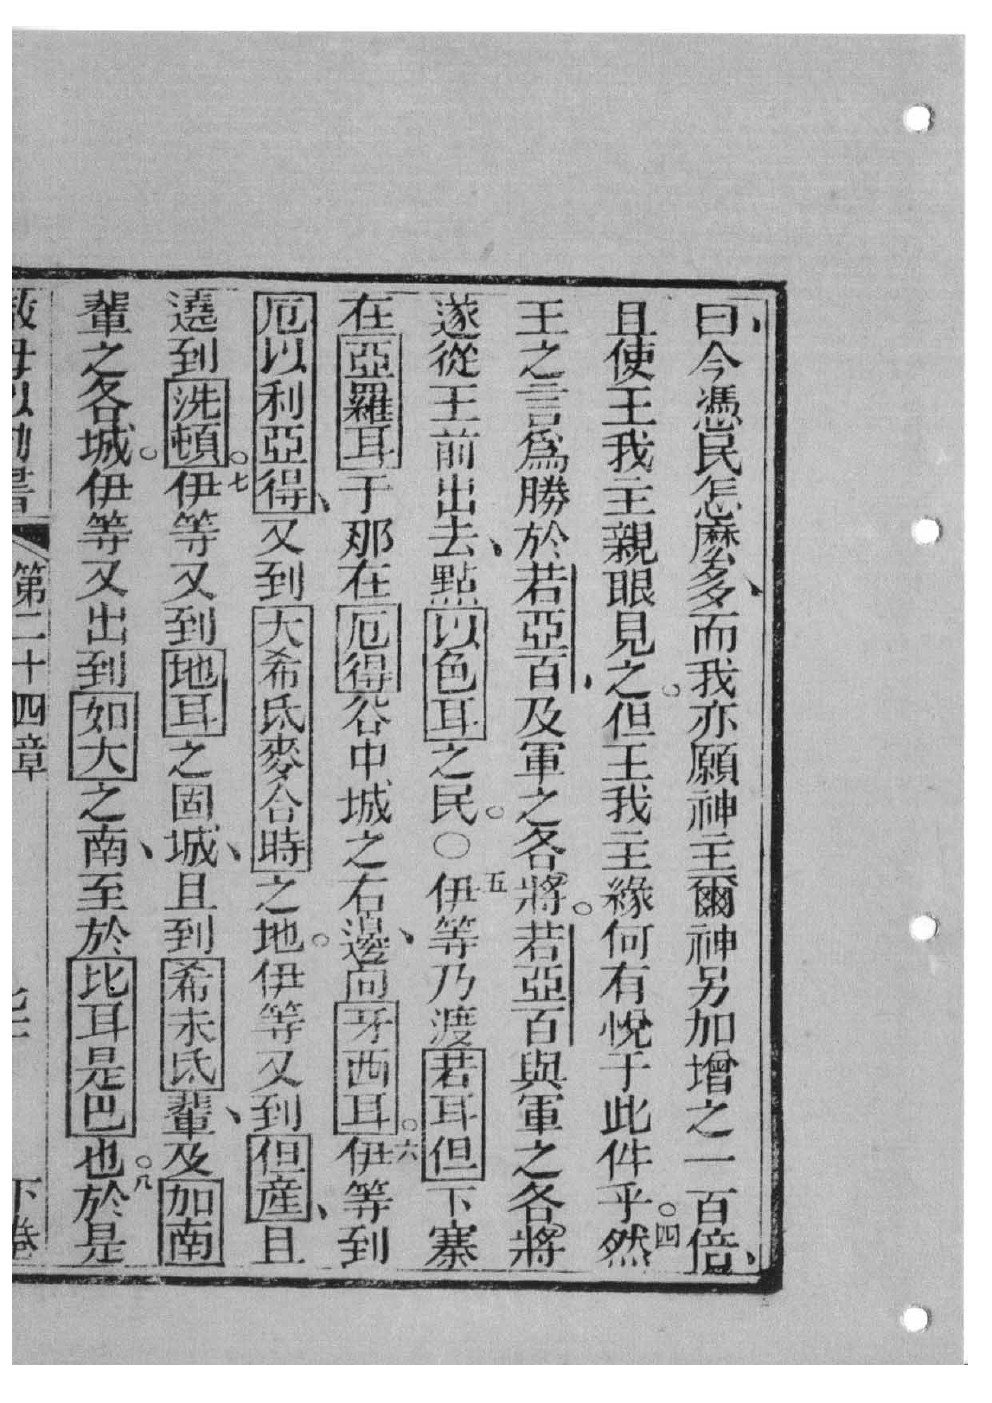 曰、今憑民怎麽多、而我亦願神主爾神另加增之一百倍、
且使王我主親眼見之。但王我主緣何有悅于此件乎。○四然
王之言爲勝於若亞百、及軍之各將。若亞百與軍之各將
遂從王前出去、點以色耳之民。○五伊等乃渡若耳但下寨
在亞羅耳于那在厄得谷中城之右邊、向牙西耳。○六伊等到
厄以利亞得、又到大希氐麥合時之地。伊等又到但產、且
遶到洗頓。○七伊等又到地耳之固城、且到希未氐輩、及加南
輩之各城。伊等又出到如大之南、至於比耳是巴也。○八於是
第二十四章
下卷